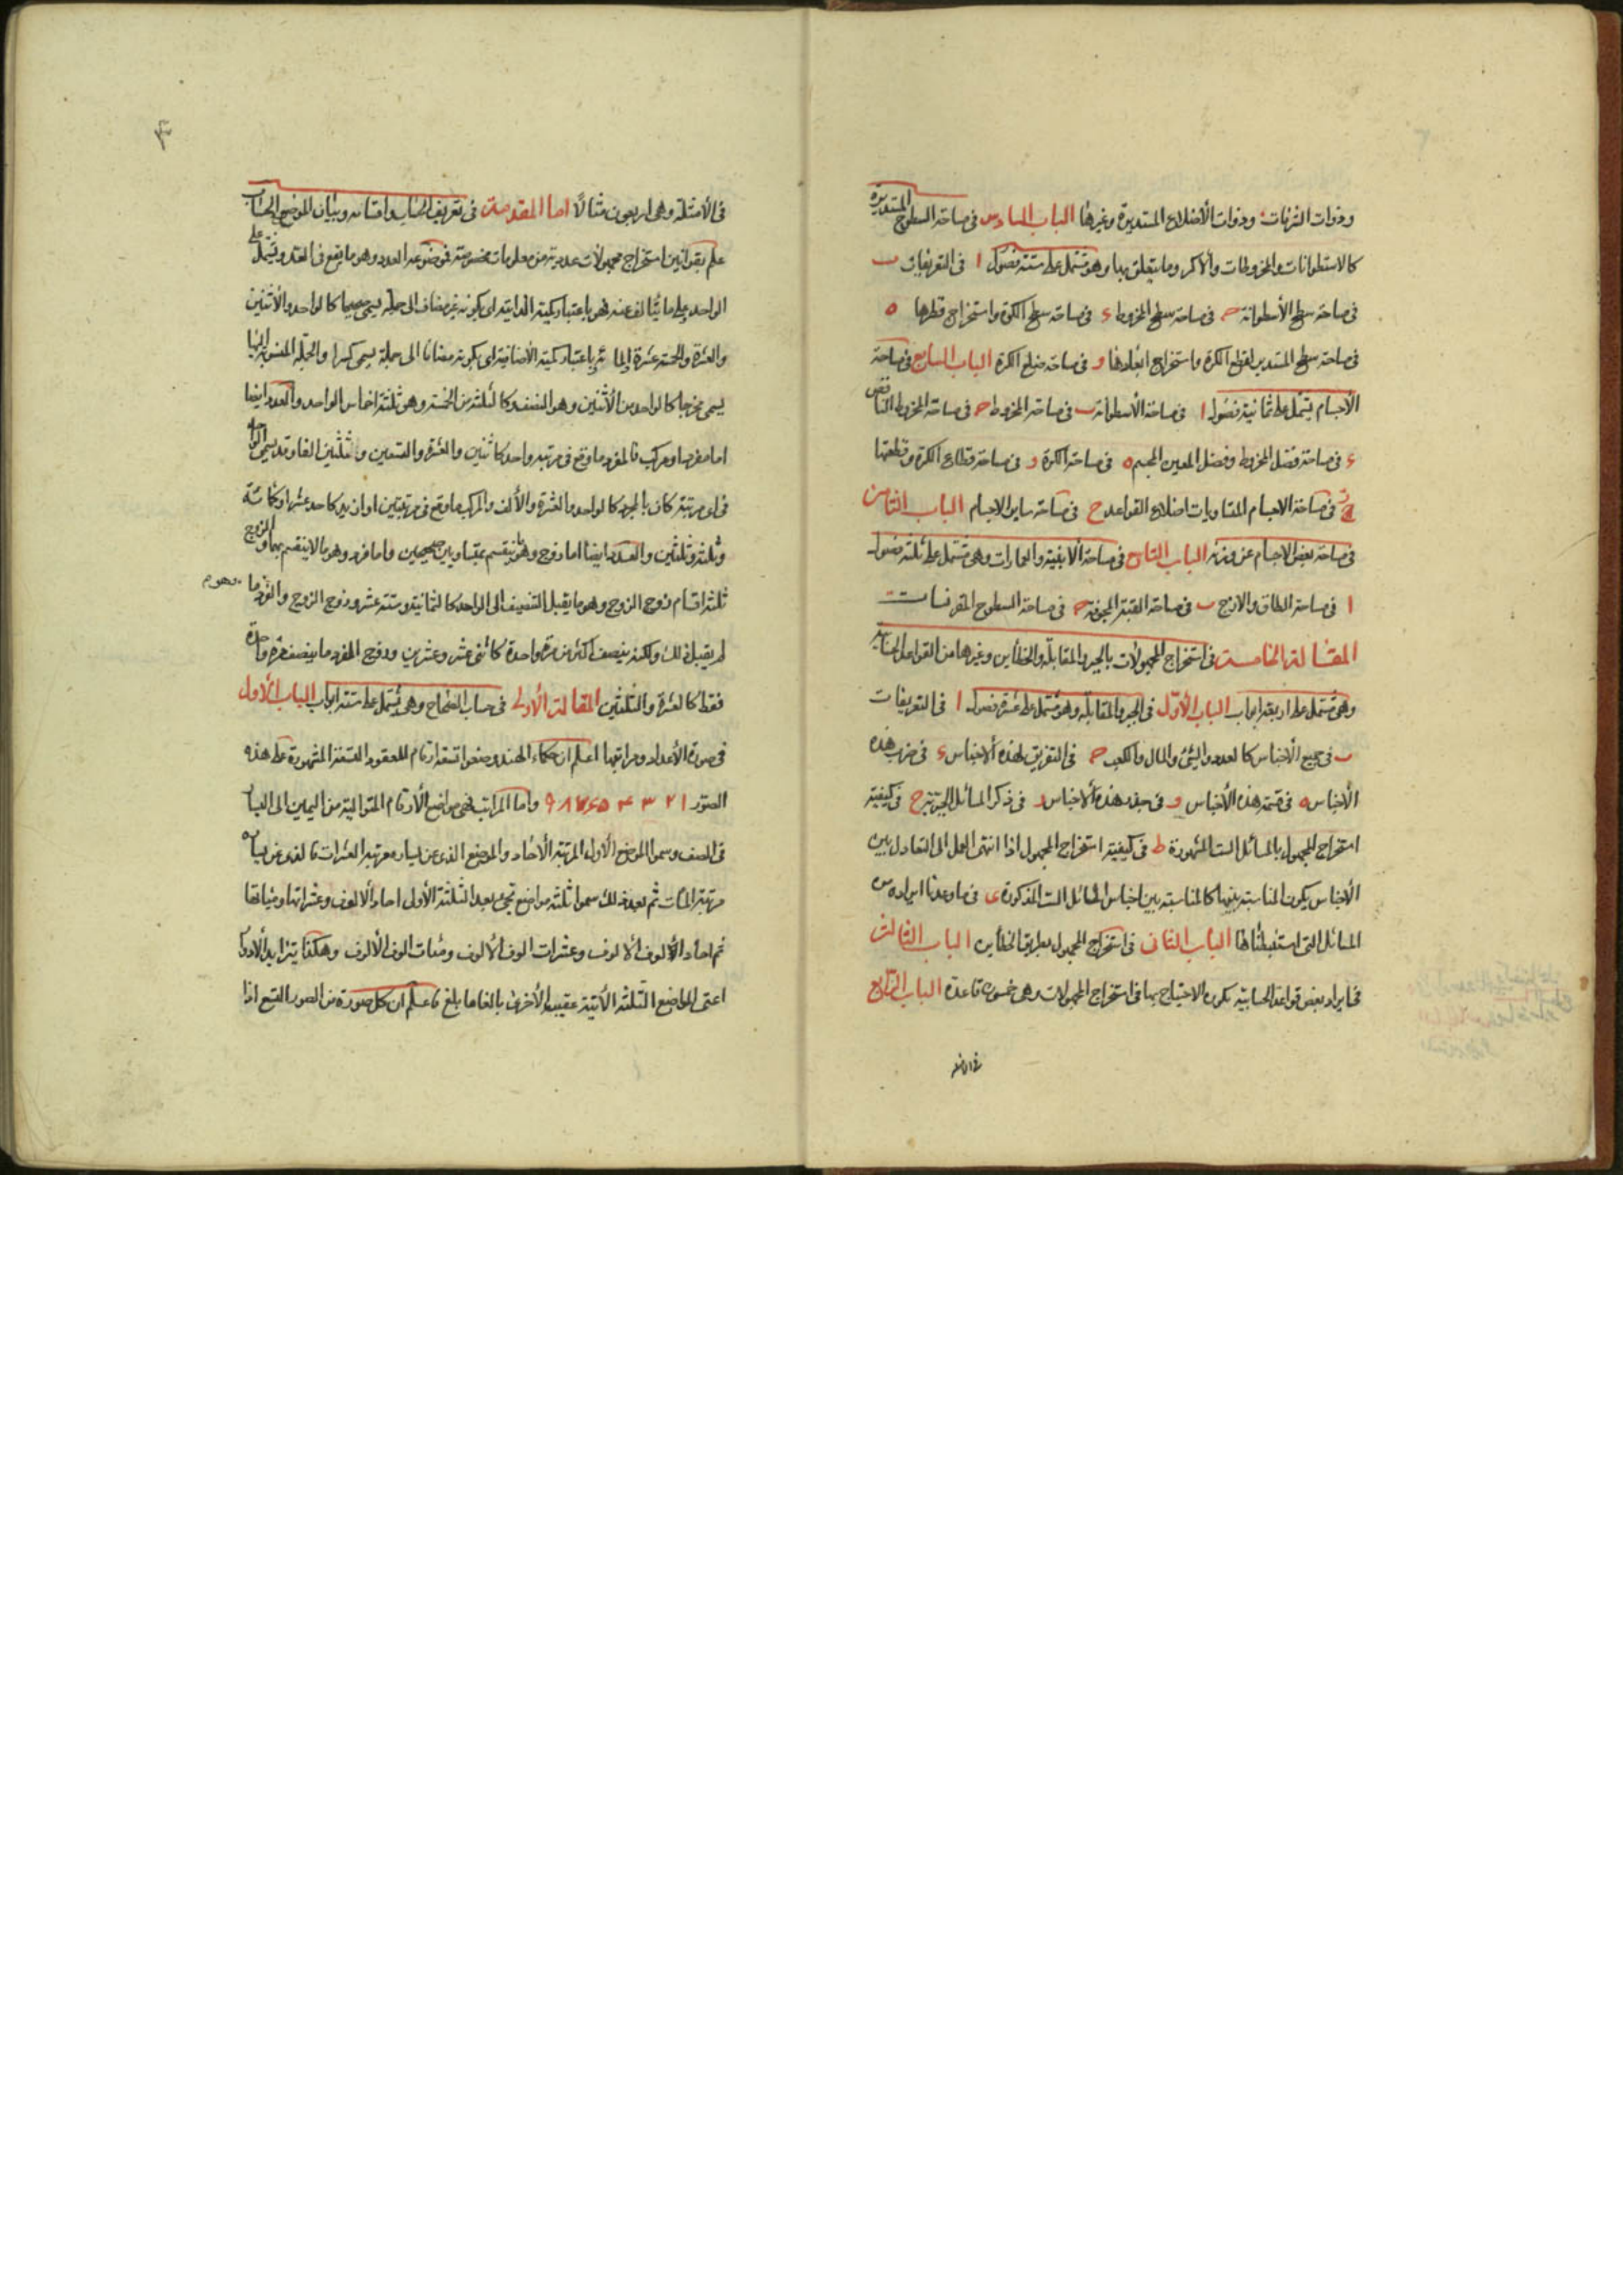 وذوات الشرفات وذوات الأضلاع المستديرة وغيرها الباب السادس فى مساحة السطوح المستديرة
كالاسطوانات والمخروطات والأكر وما يتعلق بها وهو مشتمل على ستة فصول ا فى التعريفات ب
فى مساحة سطح الأسطوانة ح فى مساحة سطح المخروط ء فى مساحة سطح الكرة واستخراج قطرها ه
فى مساحة سطح المستدير لقطع الكرة واستخراج ابعادها و فى مساحة ضلع الكرة الباب السابع فى مساحة
الأجسام يشتمل على ثمانية فصول ا فى مساحة الأسطوانة ب فى مساحة المخروط ح فى مساحة المخروط الناقص
ء فى مساحة فضل المخروط وفضل المعين المجسم ه فى مساحة الكرة و فى مساحة قطاع الكرة وقطعتها
ز فى مساحة الاجسام المتساويات اضلاع القواعد ح فى مساحة ساير الاجسام الباب الثامن
فى مساحة بعض الاجسام عن وزنه الباب التاسع فى مساحة الابنية والعمارات وهى مشتمل على ثلثة فصول
ا فى مساحة الطاق والازج ب فى مساحة القبة المجوفة ح فى مساحة السطوح المقرنسات
المقالة الخامسة فى استخراج المجهولات بالجبر والمقابلة والخطأين وغيرها من القواعد الحسابية
وهى مشتمل على اربعة ابواب الباب الأول فى الجبر والمقابلة وهو مشتمل على عشرة فصول ا فى التعريفات
ب فى جمع الأجناس كالعدد والشئ والمال والكعب ح فى التفريق لهذه الأجناس ء فى ضرب هذه
الأجناس ه فى قسمة هذه الأجناس و فى جذر هذه الأجناس ز فى ذكر المسائل الجبرية ح فى كيفية
استخراج المجهول بالمسائل الست المشهورة ط فى كيفية استخراج المجهول اذا انتهى العمل الى التعادل بين
الأجناس يكون المناسبة بينها كالمناسبة بين اجناس المسائل الست المذكورة ى فى ما وعدنا ايراده من
المسائل التى استنبطناها الباب الثانى فى استخراج المجهول بطريق الخطأين الباب الثالث
فى ايراد بعض قواعد الحسابية يكون الاحتياج بها فى استخراج المجهولات وهى خمسون قاعدة الباب الرابع
فى الامثلة
فى الأمثلة وهى اربعون مثالا اما المقدمة فى تعريف الحساب واقسامه وبيان الموضوع الحساب
علم بقوانين استخراج مجهولات عددية من معلومات مخصوصة فموضوعه العدد وهو ما يقع فى العد ويشمل على
الواحد وعلى ما يتالف عنه فهو باعتبار كميته الذاتية اى بكونه غير مضاف الى جملة يسمى صحيحا كالواحد والأثنين
والعشرة والخمسة عشرة والمائة وباعتبار كميته الأضافية اى بكونه مضافا الى جملة يسمى كسرا والجملة المنسوب اليها
يسمى مخرجا كالواحد من الأثنين وهو النصف وكالثلثة من الخمسة وهو ثلثة اخماس الواحد والعدد ايضا
اما مفرد او مركب فالمفرد ما وقع فى مرتبة واحدة كاثنين والعشرة والتسعين وثلثين الفا وقد يسمى الواحد
فى اى مرتبة كان بالمجرد كالواحد والعشرة والألف والمركب ما وقع فى مرتبتين او ازيد كاحد عشر او كمائة
وثلثة وثلثين والعدد ايضا اما زوج وهو ينقسم بمتساويين صحيحين واما فرد وهو ما لا ينقسم بهما والزوج
ثلثة اقسام زوج الزوج وهو ما يقبل التنصيف الى الواحد كالثمانية وستة عشر وزوج الزوج والفرد ما
وهو م
لم يقبل ذلك ولكنه ينصف اكثر من مرة واحدة كاثنى عشر وعشرين وزوج الفرد ما ينصف مرة واحدة
فقط كالعشرة والثلثين المقالة الأولى فى حساب الصحاح وهى يشتمل على ستة ابواب الباب الأول
فى صورة الأعداد ومراتبها اعلم ان حكماء الهند وضعوا تسعة ارقام للعقود التسعة المشهورة على هذه
الصور ١ ٢ ٣ ۴ ۵ ۶ ٧ ٨ ٩ واما المراتب فهى مواضع الأرقام المتوالية من اليمين الى اليسار
فى الصف وسموا الموضع الأول المرتبة الأحاد والموضع الذى عن يساره مرتبة العشرات والذى عن يساره
مرتبة المئات ثم بعد ذلك سموا ثلثة مواضع تجئ بعد الثلثة الأول احاد الالوف وعشراتها ومئاتها
ثم احاد الألوف الألوف وعشرات الوف الألوف ومئات الوف الألوف وهكذا يتزايد الأدوار
اعنى المواضع الثلثة الأتية عقيب الأخرى بالغا ما بلغ فاعلم ان كل صورة من الصور التسع اذا